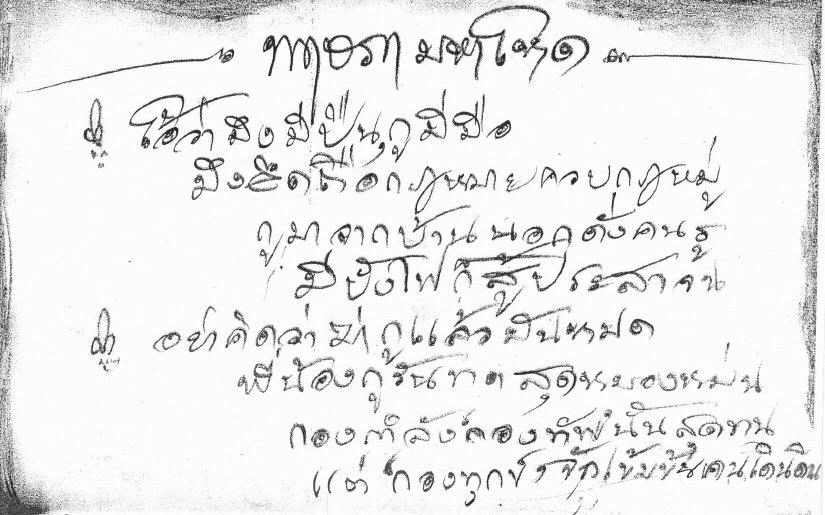 มหาโหด
โอ้ว่า มึง มีปืน กู มีมือ
มึงยึดถือกฎหมายควบกฎหมู่
กูมาจากบ้านนอกดั่งคนรู
มีบั้งไฟก็สู้ประสาจน
อย่าคิดว่าฆ่ากูแล้วมันหมด
พี่น้องกูรันทดสุดหมองหม่น
กองกำลังกองทัพนั้นสุดทน
แต่กองทุกข์จักเข้มข้นคนเดินดิน